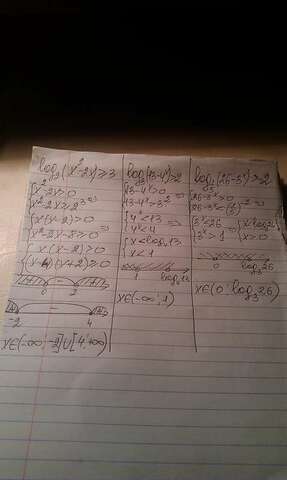 log₂(x²-2x)≥3
{x²-2x>0
{x²-2x≥2³ ⇒
{x(x-2)>0
{x²-2x-8≥0 ⇒
{x(x-2)>0
{(x-4)(x+2)≥0
0 2
-2 4
x∈(-∞;-2]∪[4;+∞)
log₃(13-4ˣ)>2
{13-4ˣ>0
{13-4ˣ>3² ⇒
{4ˣ<13
{4ˣ<4 ⇒
{x<log₄13
{x<1
1 log₄13
x∈(-∞;1)
(26-3ˣ)>-2
{26-3ˣ>0
{3ˣ<26
{3ˣ>1 ⇒
{x<log₃26
{x>0
0 log₃26
x∈(0;log₃26)